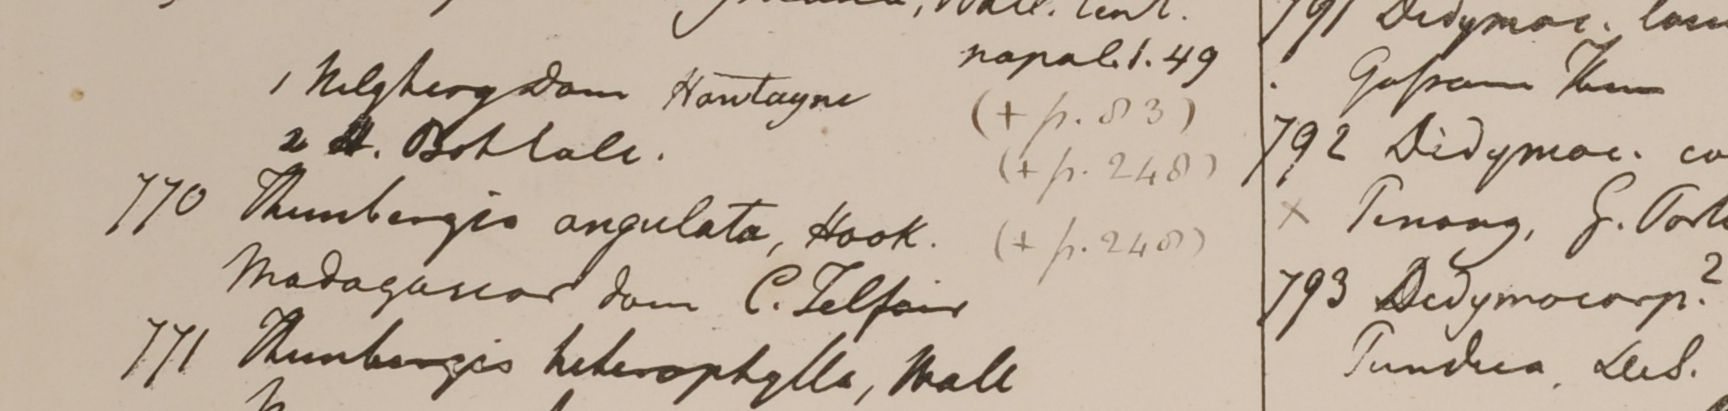 Wall. Tent.
napal. 1. 49
1 Nilgherry Dom Hontayne (+ p. 83)
2 H. Bot Calc. (+ p. 248)
770 Thunbergia angulata, Hook. (+ p. 248)
Madagascar Dom C. Telfair
771 Thunbergia heterophylla, Wall
791 Didymoc.
792 Didymoc.
x Penang, G. Port
793 Didymocarp. ?
Tundua, Des.